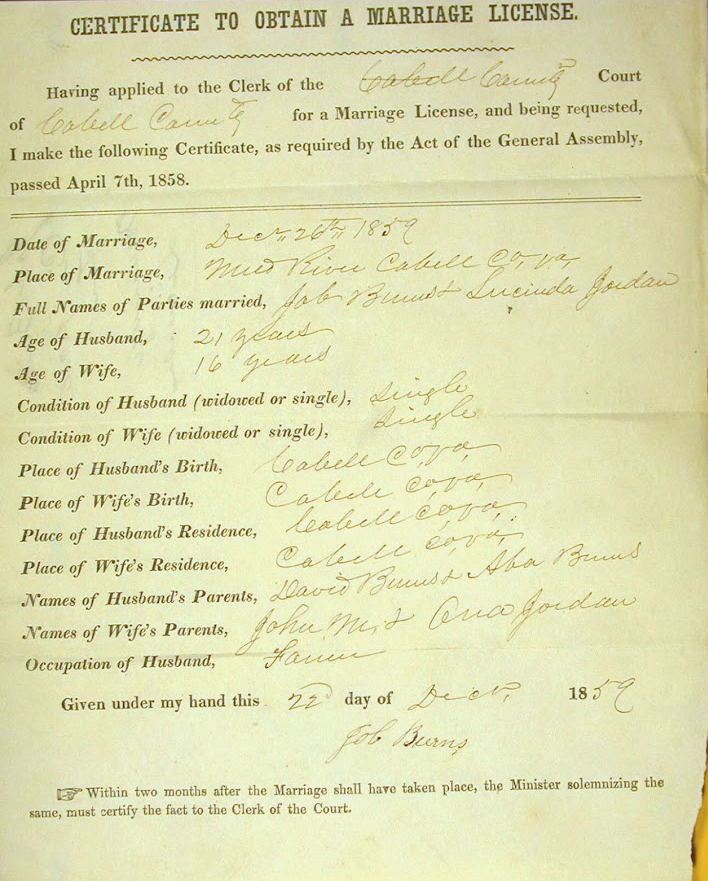 CERTIFICATE TO OBTAIN A MARRIAGE LICENSE.
Having applied to the Clerk of the Cabell County Court
of Cabell County for a Marriage License, and being requested,
I make the following Certificate, as required by the Act of the General Assembly,
passed April 7th, 1858.
Date of Marriage, Decr,, 26th,, 1859
Place of Marriage, Mud River Cabell Co, va,
Full Names of Parties married, Job Burns & Lucinda Jordan
Age of Husband, 21 years
Age of Wife, 16 years
Condition of Husband (widowed or single), Single
Condition of Wife (widowed or single), Single
Place of Husband's Birth, Cabell Co, va,
Place of Wife's Birth, Cabell Co, va,
Place of Husband's Residence, Cabell Co, va,
Place of Wife's Residence, Cabell Co, va,
Names of Husband's Parents, David Burns & Burns
Names of Wife's Parents, John M, & Jordan
Occupation of Husband, Farmer
Given under my hand this 22d day of Decr, 1859
Job Burns
☞ Within two months after the Marriage shall have taken place, the Minister solemnizing the
same, must certify the fact to the Clerk of the Court.